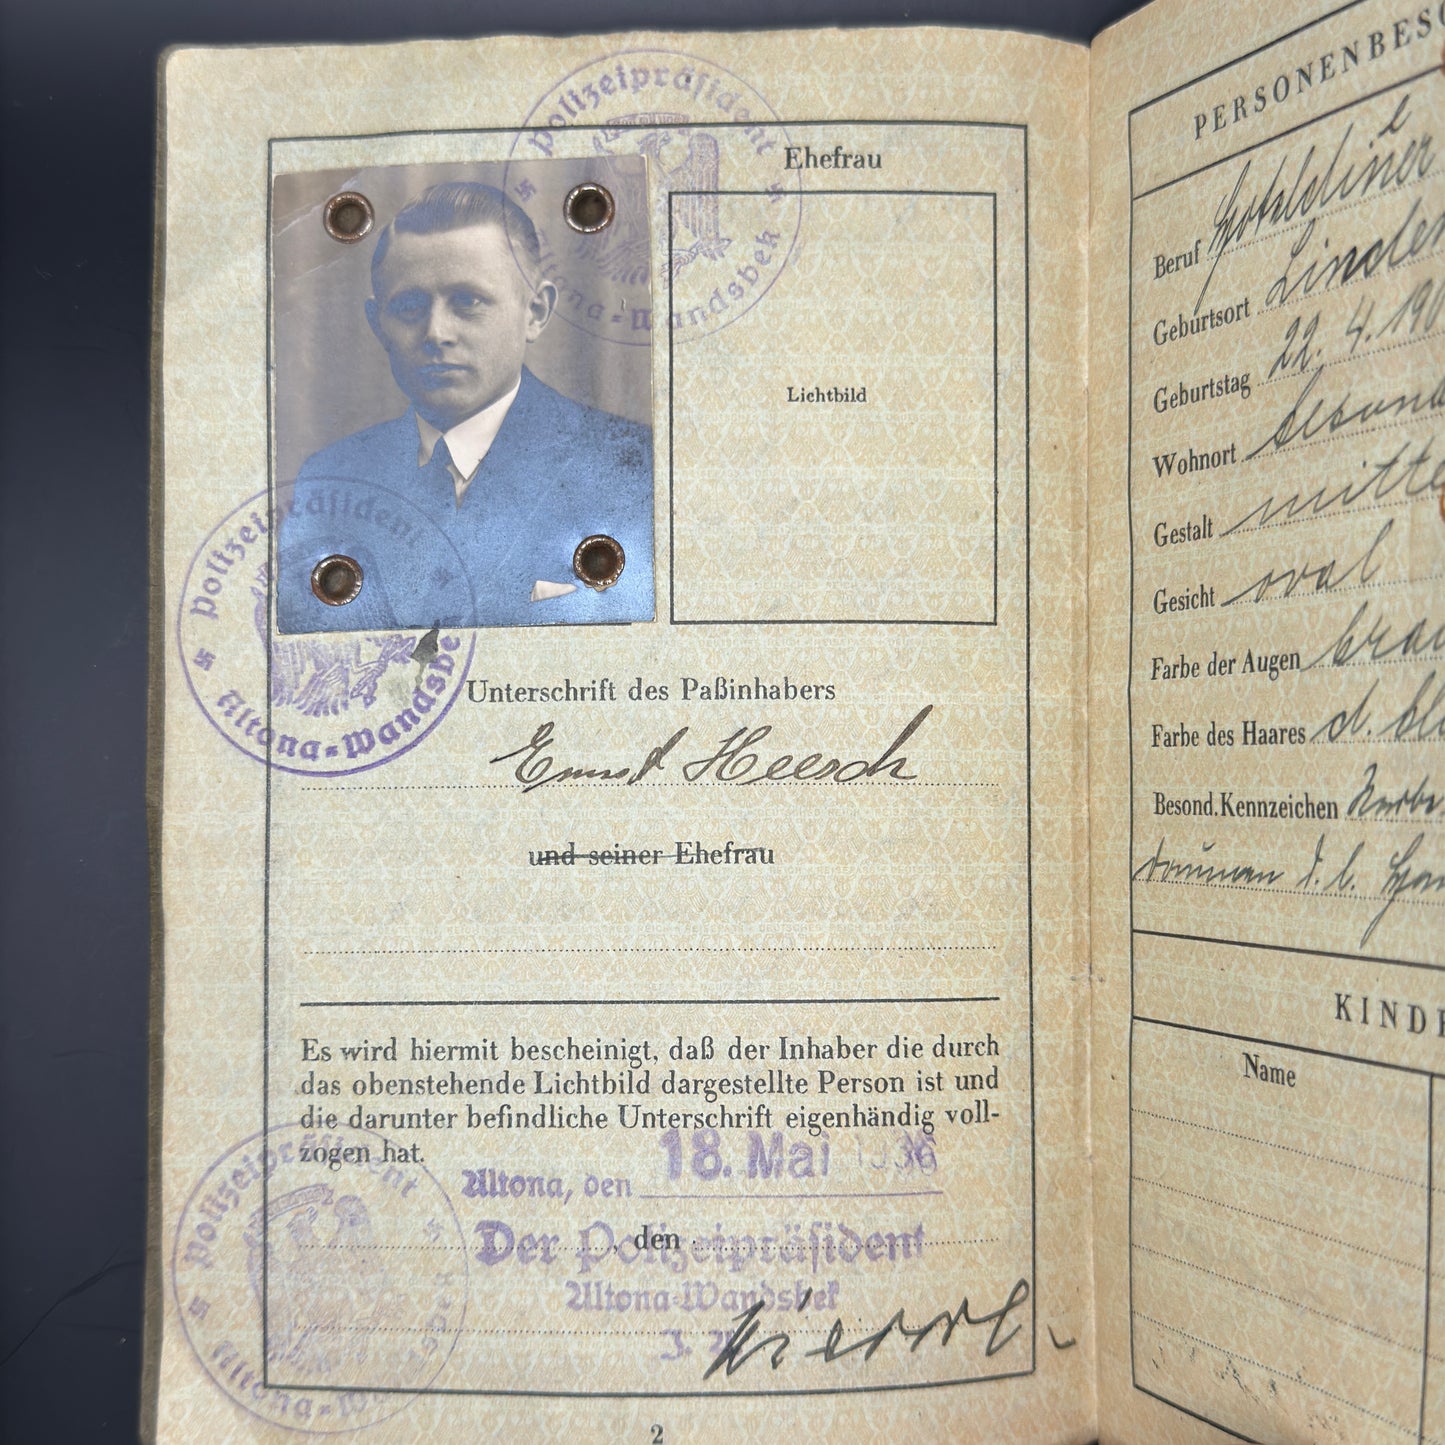 Polizeipräsident
Altona-Wandsbek
Ehefrau
Lichtbild
Polizeipräsident
Altona-Wandsbe
Unterschrift des Paßinhabers
Ernst Heesch
und seiner Ehefrau
Es wird hiermit bescheinigt, daß der Inhaber die durch
das obenstehende Lichtbild dargestellte Person ist und
die darunter befindliche Unterschrift eigenhändig voll-
zogen hat.
Altona, den 18. Mai 1936
, den
Der Polizeipräsident
Altona-Wandsbek
Polizeipräsident
Altona-W
2
PERSONENBESC
Beruf
Geburtsort Linden
Geburtstag 22. 4. 190
Wohnort
Gestalt mitte
Gesicht oval
Farbe der Augen brau
Farbe des Haares d. bl
Besond. Kennzeichen Narbe
daumen d. l.
KINDE
Name